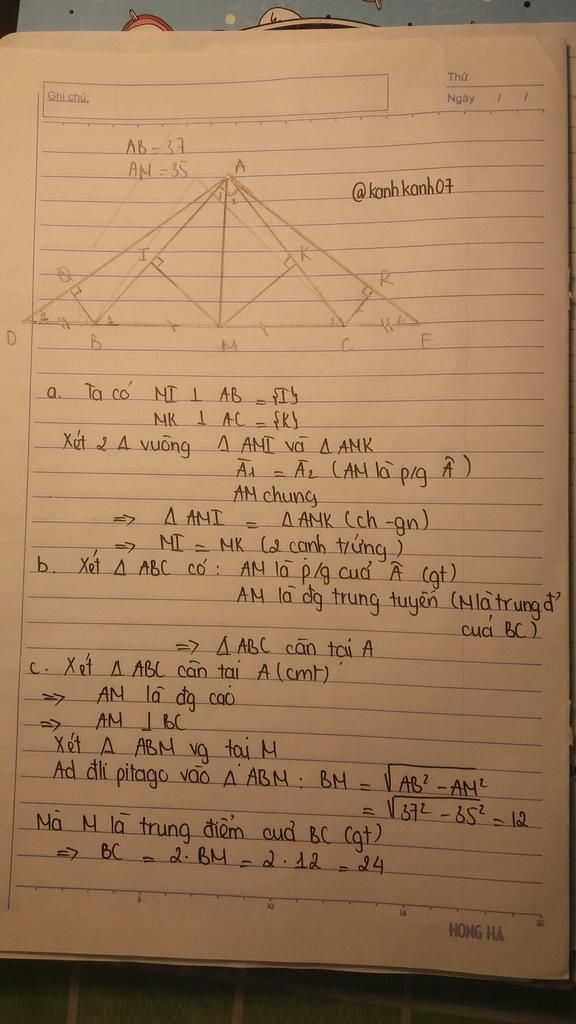 Thứ
Ghi chú:
Ngày / /
AB = 37
AM = 35
A
@kanhkanh07
1 2
I
K
Q
R
D
B
M
C
E
a. Ta có MI ⊥ AB = {I}
MK ⊥ AC = {K}
Xét 2 Δ vuông Δ AMI và Δ AMK
Â1 = Â2 (AM là p/g Â)
AM chung
=> Δ AMI = Δ AMK (ch-gn)
=> MI = MK (2 cạnh t/ứng)
b. Xét Δ ABC có: AM là p/g của  (gt)
AM là đg trung tuyến (M là trung đ'
của BC)
=> Δ ABC cân tại A
c. Xét Δ ABC cân tại A (cmt)
=> AM là đg cao
=> AM ⊥ BC
Xét Δ ABM vg tại M
Ad đlí pitago vào Δ ABM: BM = √AB² - AM²
= √37² - 35² = 12
Mà M là trung điểm của BC (gt)
=> BC = 2. BM = 2 . 12 = 24
5 10 15 20
HONG HA